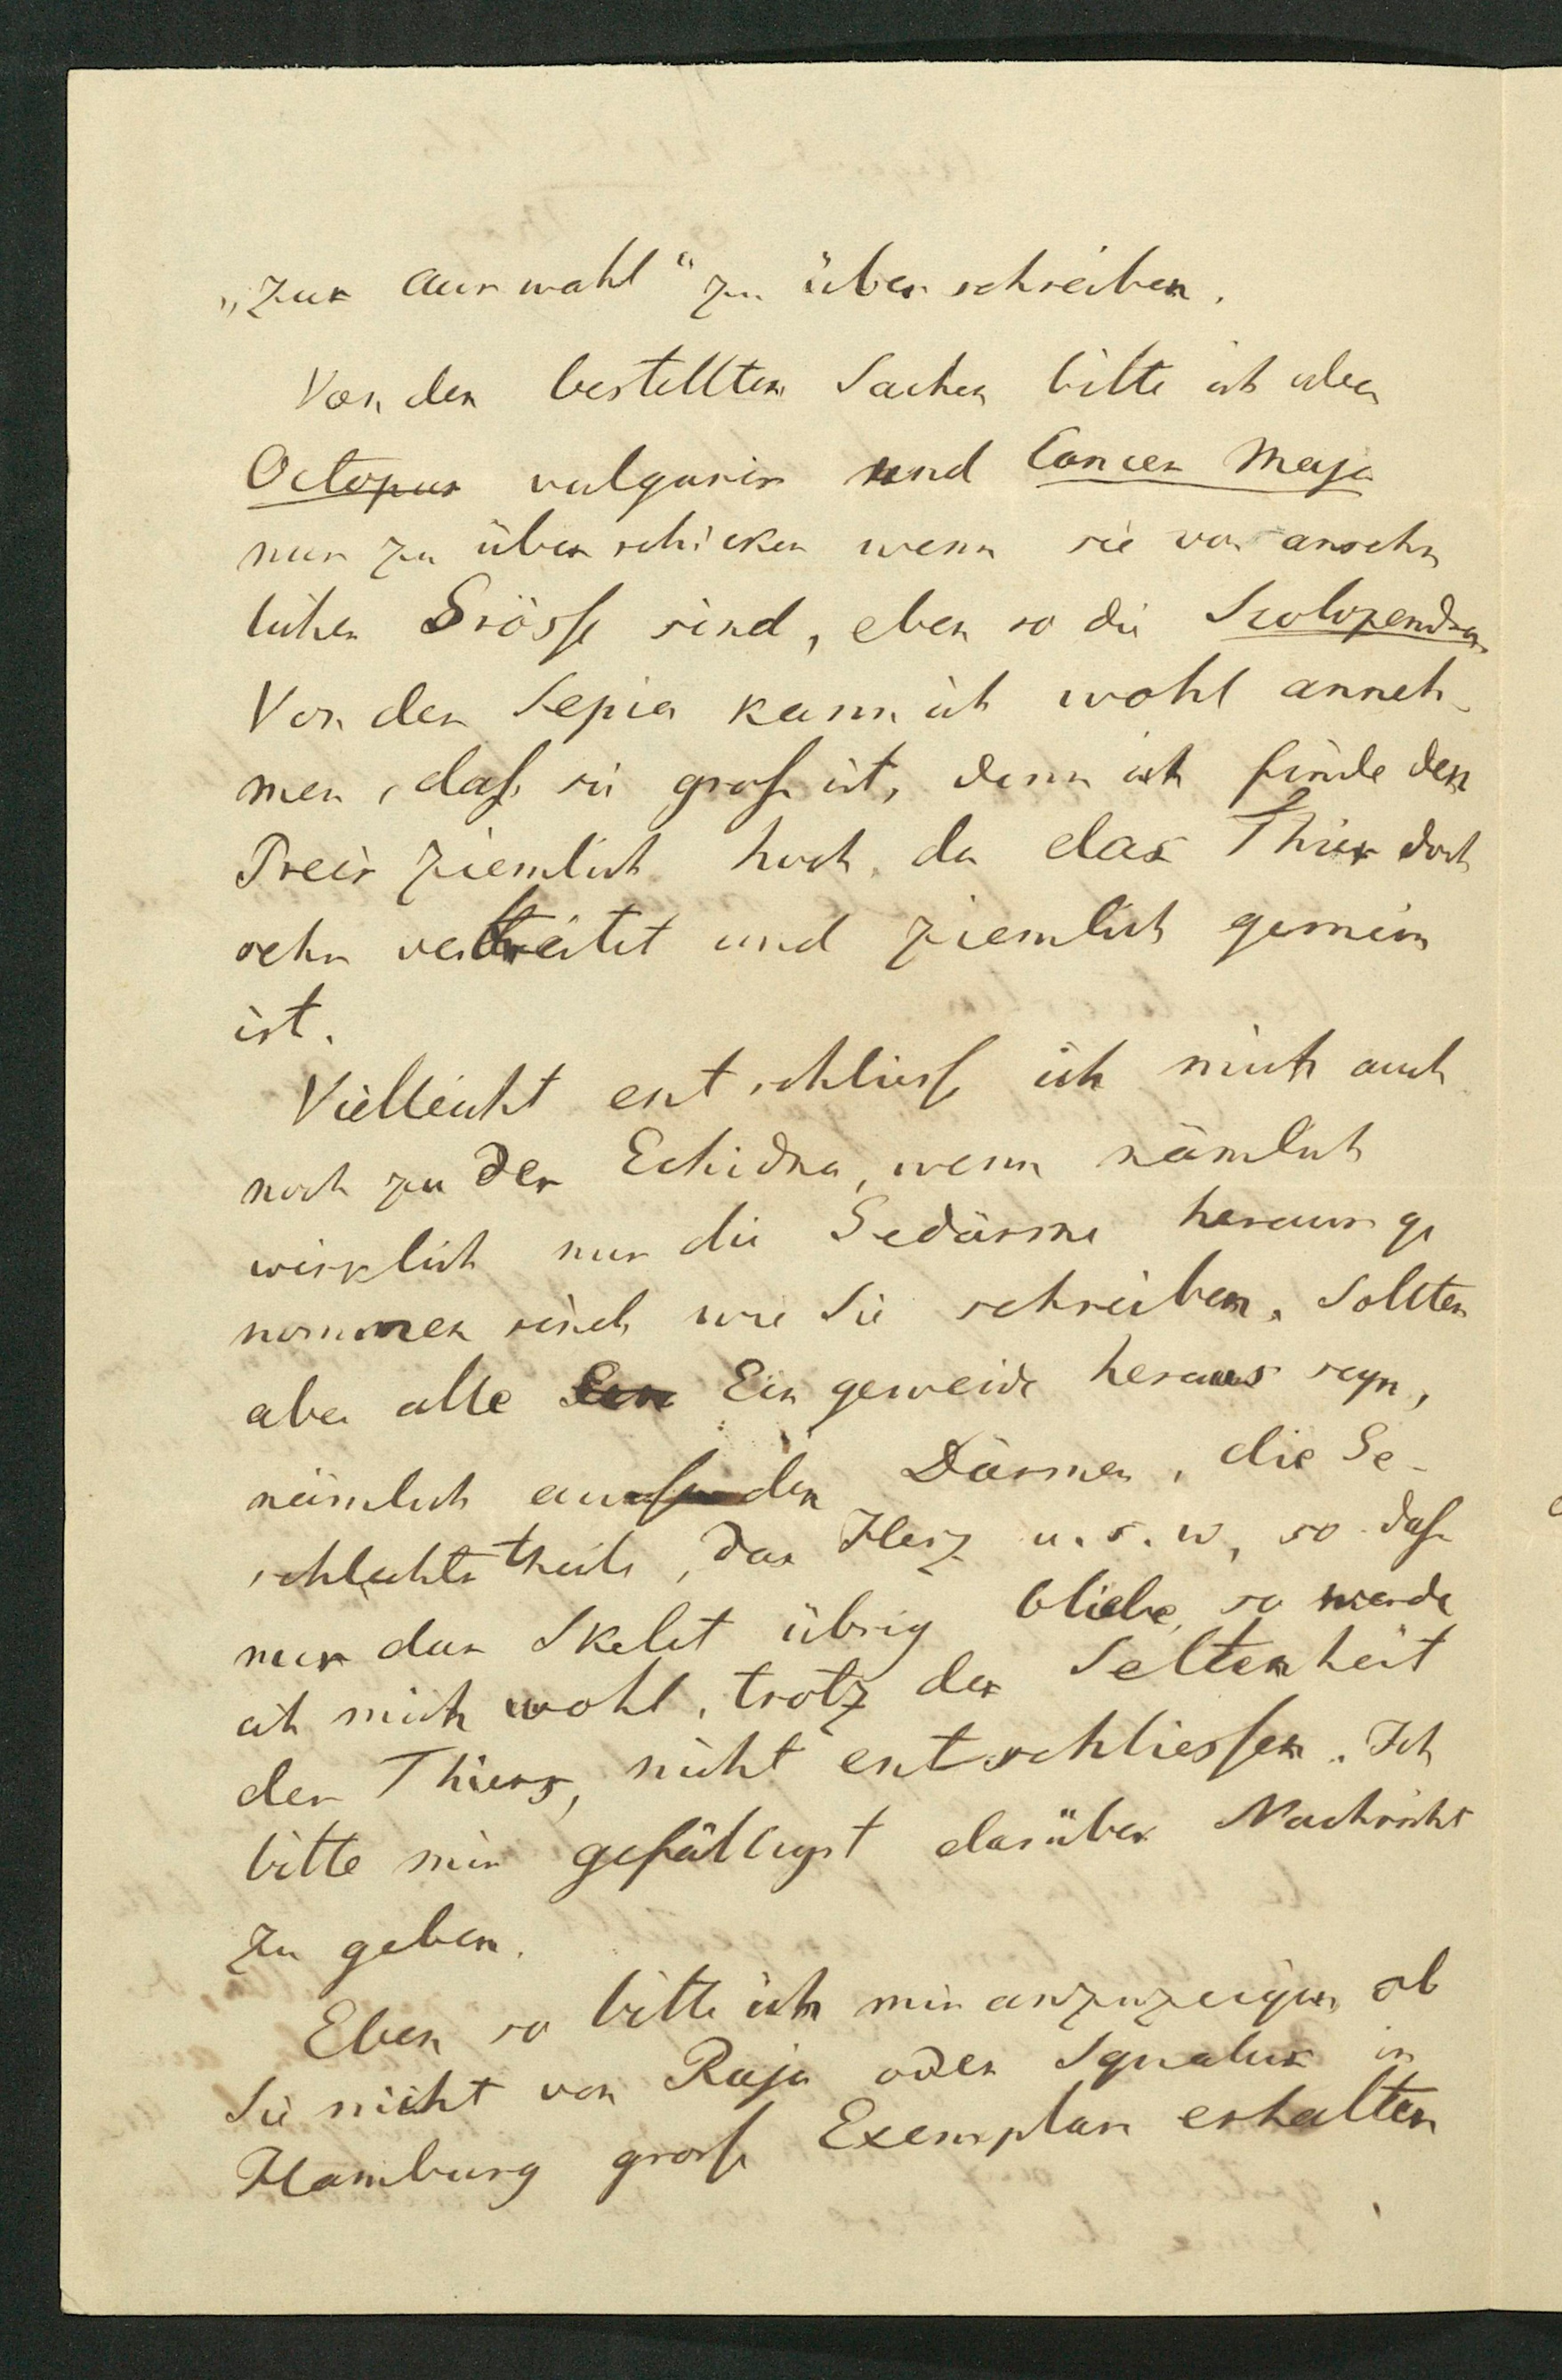 „zur auswahl“ zu überschreiben.
Von den bestellten Sachen bitte ich aber
Octopus vulgaris und Cancer Maja
nur zu überschicken wenn sie von ansehn
lichen Grösse sind, eben so die Scolopendra.
Von der Sepia kann ich wohl anneh-
men, dass sie gross ist, denn ich finde den
Preis ziemlich hoch, da das Thier doch
sehr verbreitet und ziemlich gemein
ist.
Vielleicht entschliesse ich mich auch
noch zu der Echidna, wenn nämlich
wirklich nur die Gedärme herausge
nommen sind, wie Sie schreiben. Sollten
aber alle Eingeweide heraus seyn,
nämlich ausser den Därmen, die Ge-
schlechtstheile, das Herz u. s. w, so dass
nur das Skelet übrig bliebe, so werde
ich mich wohl, trotz der Seltenheit
des Thiers, nicht entschliessen. Ich
bitte mir gefälligst darüber Nachricht
zu geben.
Eben so bitte ich mir anzuzeigen, ob
Sie nicht von Raja oder Squalus in
Hamburg grosse Exemplare erhalten